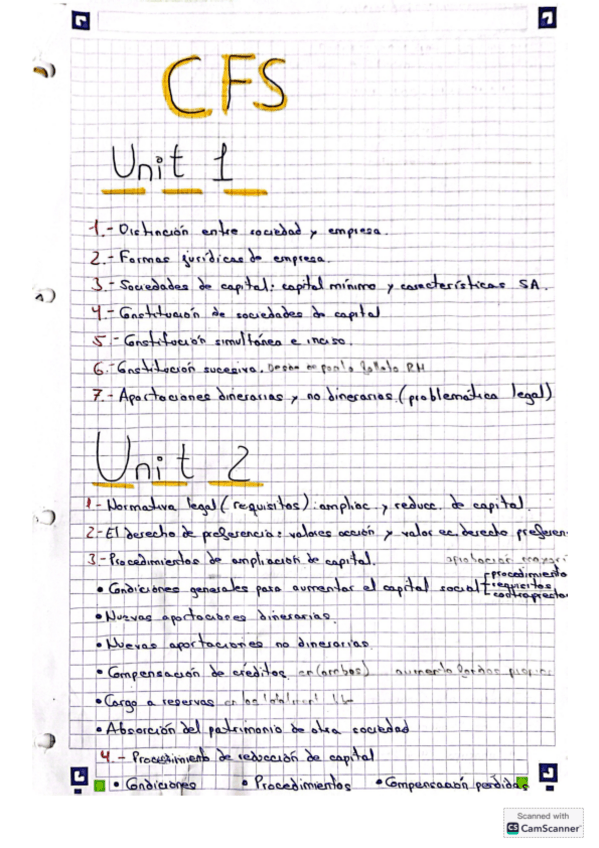 CFS
Unit 1
1.- Distinción entre sociedad y empresa.
2.- Formas jurídicas de empresa.
3.- Sociedades de capital: capital mínimo y características SA.
4.- Constitución de sociedades de capital
5.- Constitución simultánea e inciso.
6.- Constitución sucesiva.
7.- Aportaciones dinerarias y no dinerarias. (problemática legal)
Unit 2
1- Normativa legal (requisitos): ampliac. y reducc. de capital.
2.- El derecho de preferencia: valores acción y valor ec. derecho preferen
3.- Procedimientos de ampliación de capital.
procedimiento
• Condiciones generales para aumentar el capital social requisitos
• Nuevas aportaciones dinerarias.
• Nuevas aportaciones no dinerarias.
• Compensación de créditos
• Cargo a reservas
• Absorción del patrimonio de otra sociedad
4.- Procedimiento de reducción de capital
• Condiciones • Procedimientos • Compensación perdidas
Scanned with
CS CamScanner